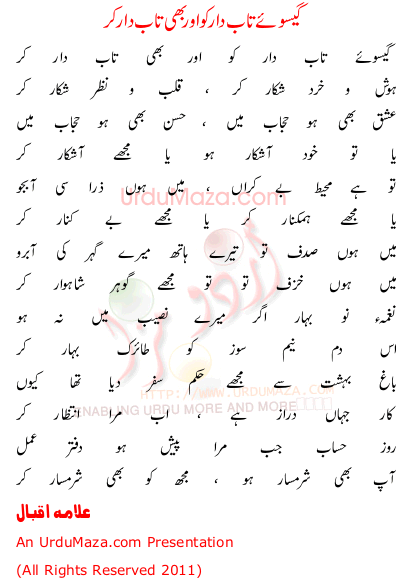 گیسوئے تاب دار کو اور بھی تاب دار کر
گیسوئے تاب دار کو اور بھی تاب دار کر
ہوش و خرد شکار کر ، قلب و نظر شکار کر
عشق بھی ہو حجاب میں ، حسن بھی ہو حجاب میں
یا تو خود آشکار ہو یا مجھے آشکار کر
تو ہے محیط بے کراں ، میں ہوں ذرا سی آبجو
یا مجھے ہمکنار کر یا مجھے بے کنار کر
میں ہوں صدف تو تیرے ہاتھ میرے گہر کی آبرو
میں ہوں خزف تو تو مجھے گوہر شاہوار کر
نغمۂ نو بہار اگر میرے نصیب میں نہ ہو
اس دم نیم سوز کو طائرک بہار کر
باغ بہشت سے مجھے حکم سفر دیا تھا کیوں
کار جہاں دراز ہے ، اب مرا انتظار کر
روز حساب جب مرا پیش ہو دفتر عمل
آپ بھی شرمسار ہو ، مجھ کو بھی شرمسار کر
علامہ اقبال
An UrduMaza.com Presentation
(All Rights Reserved 2011)
UrduMaza.com
اردو مزا
HTTP://WWW.URDUMAZA.COM
ENABLING URDU MORE AND MORE